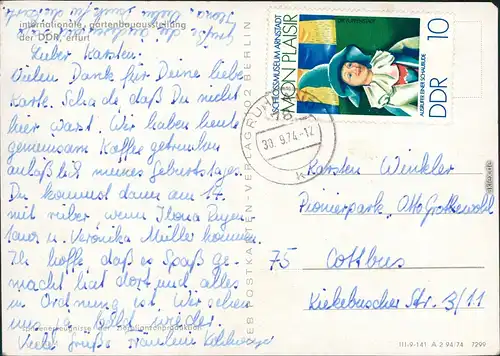 internationale gartenbauausstellung
der DDR, erfurt
Lieber Karsten!
Vielen Dank für Deine liebe
Karte. Schade daß Du nicht
hier warst. Wir haben heute
gemeinsam Kaffee getrunken
anläßlich meines Geburtstages.
Du kommst dann am 14.
mit rüber, wenn Ilona
u. Veronika Müller kommen.
Ich hoffe, daß es Spaß ge-
macht hat dort und alles
in Ordnung ist. Wir sehen
uns ja bald wieder.
Viele Grüße Fräulein
zierpflanzenproduktion
POSTKARTEN-VERLAG
1102 BERLIN
SCHLOSSMUSEUM ARNSTADT
MON PLAISIR
ALS
SCHAUBUDE
DDR 10
30.9.74-12
Karsten Winkler
Pionierpark "Otto Grotewohl"
75 Cottbus
Kiekebuscher Str. 3/11
III-9-141 A 2 94/74 7299